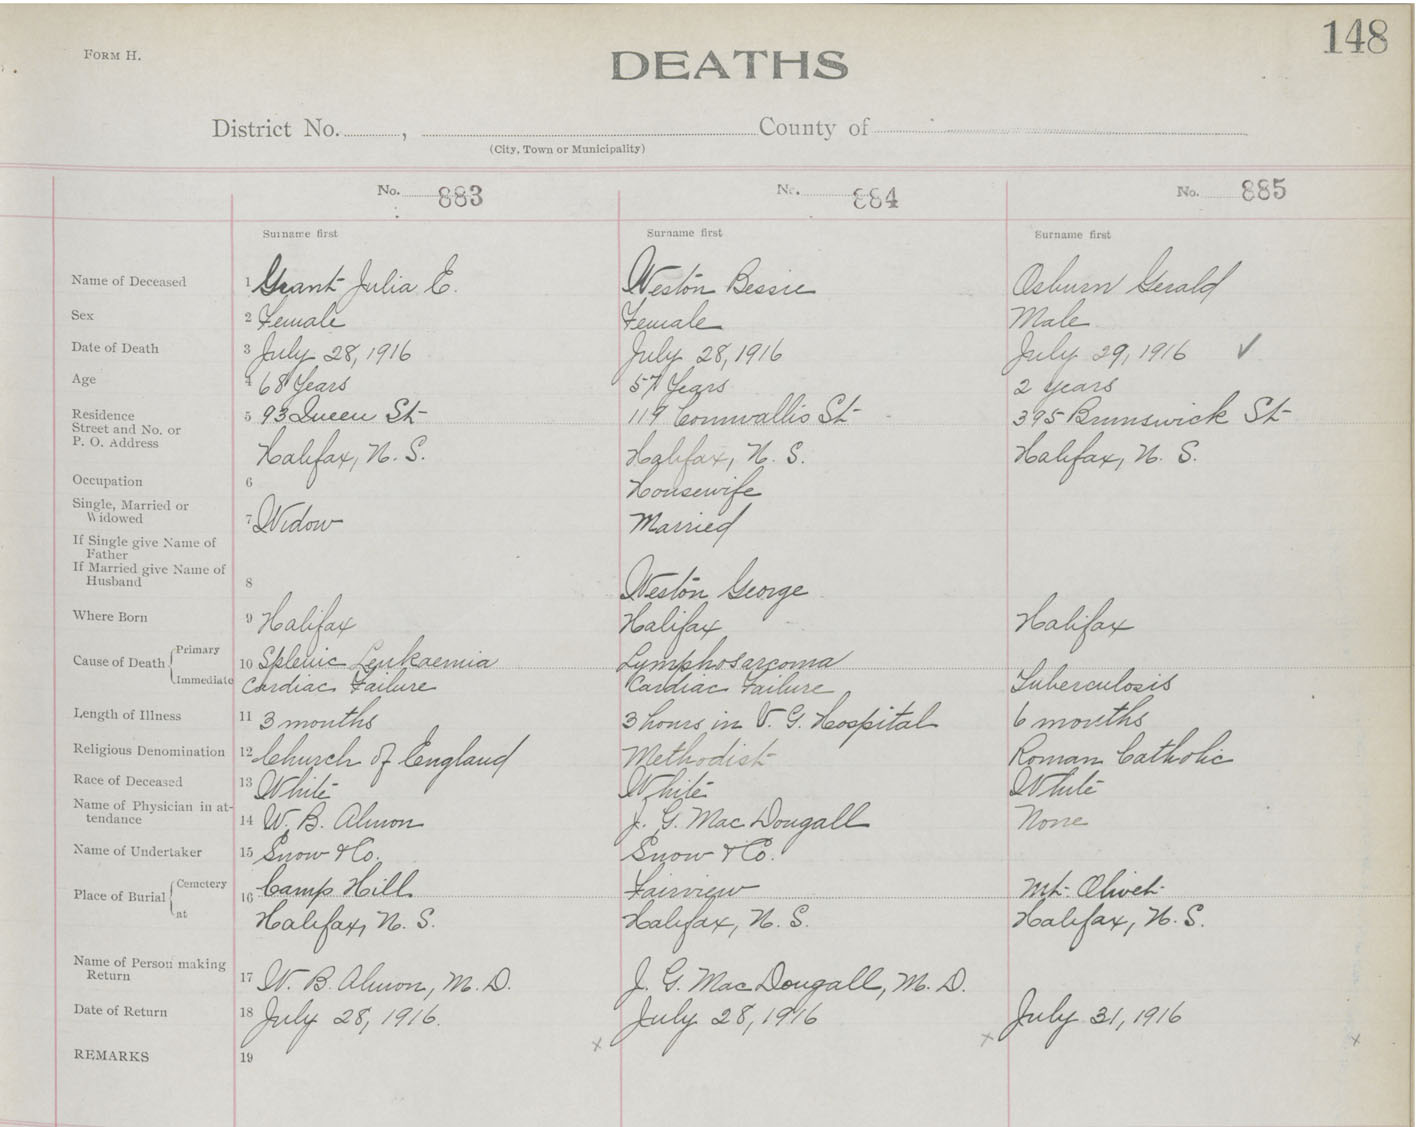 148
FORM H.
DEATHS
District No. , County of
(City, Town or Municipality)
No. 883 No. 884 No. 885
Surname first Surname first Surname first
Name of Deceased 1 Grant Julia E. Weston Bessie Osburn Gerald
Sex 2 Female Female Male
Date of Death 3 July 28, 1916 July 28, 1916 July 29, 1916 ✓
Age 4 68 Years 57 Years 2 years
Residence 5 93 Queen St 119 Cornwallis St 395 Brunswick St
Street and No. or
P. O. Address Halifax, N. S. Halifax, N. S. Halifax, N. S.
Occupation 6 Housewife
Single, Married or
Widowed 7 Widow Married
If Single give Name of
Father
If Married give Name of
Husband 8 Weston George
Where Born 9 Halifax Halifax Halifax
Cause of Death Primary 10 Splenic Leukaemia Lymphosarcoma
Immediate Cardiac Failure Cardiac Failure Tuberculosis
Length of Illness 11 3 months 3 hours in V. G. Hospital 6 months
Religious Denomination 12 Church of England Methodist Roman Catholic
Race of Deceased 13 White White White
Name of Physician in at-
tendance 14 W. B. Almon J. G. MacDougall None
Name of Undertaker 15 Snow & Co. Snow & Co.
Place of Burial Cemetery 16 Camp Hill Fairview Mt. Olivet
at Halifax, N. S. Halifax, N. S. Halifax, N. S.
Name of Person making
Return 17 W. B. Almon, M. D. J. G. MacDougall, M. D.
Date of Return 18 July 28, 1916. July 28, 1916 July 31, 1916
x x x
REMARKS 19